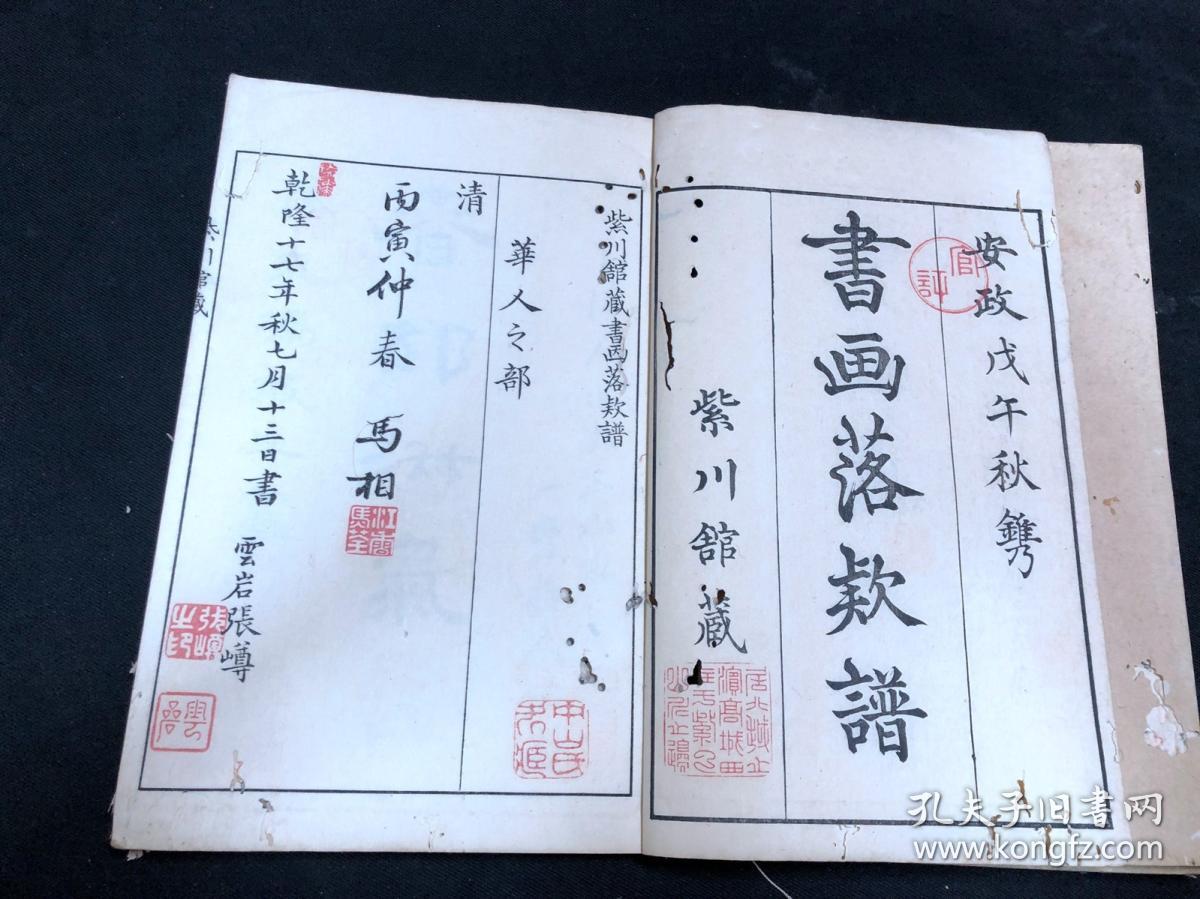 安政戊午秋鐫
官許
書画落款譜
紫川舘蔵
紫川舘蔵書画落款譜
華人之部
清
丙寅仲春 馬相
江香
馬荃
乾隆十七年秋七月十三日書 雲岩張嶟
張嶟
之印
雲岩
孔夫子旧书网
www.kongfz.com